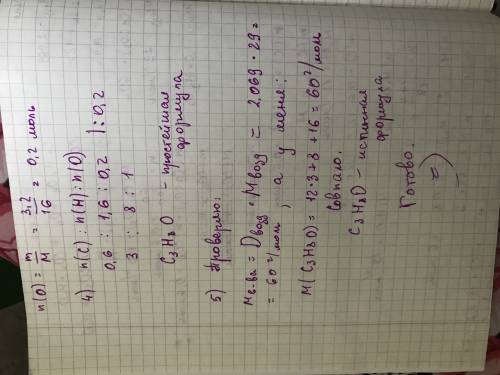 n(O) = m/M = 3,2/16 = 0,2 моль
4) n(C) : n(H) : n(O)
0,6 : 1,6 : 0,2 | : 0,2
3 : 8 : 1
C₃H₈O - простейшая формула
5) Проверяю:
Mв-ва = Dвозд • Mвозд = 2,069 • 29 =
= 60 г/моль, а у меня:
M(C₃H₈O) = 12·3+8+16 = 60 г/моль
Совпало.
C₃H₈O - истинная формула
Готово.
=)